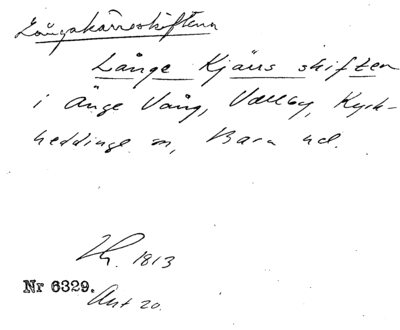 Långakärrsskiften
Långe Kjärrs skiften
i Änge Vång, Vallby, Kyrk-
heddinge sn, Bara hd.
Th. 1813
Nr 6329.
Akt 20.